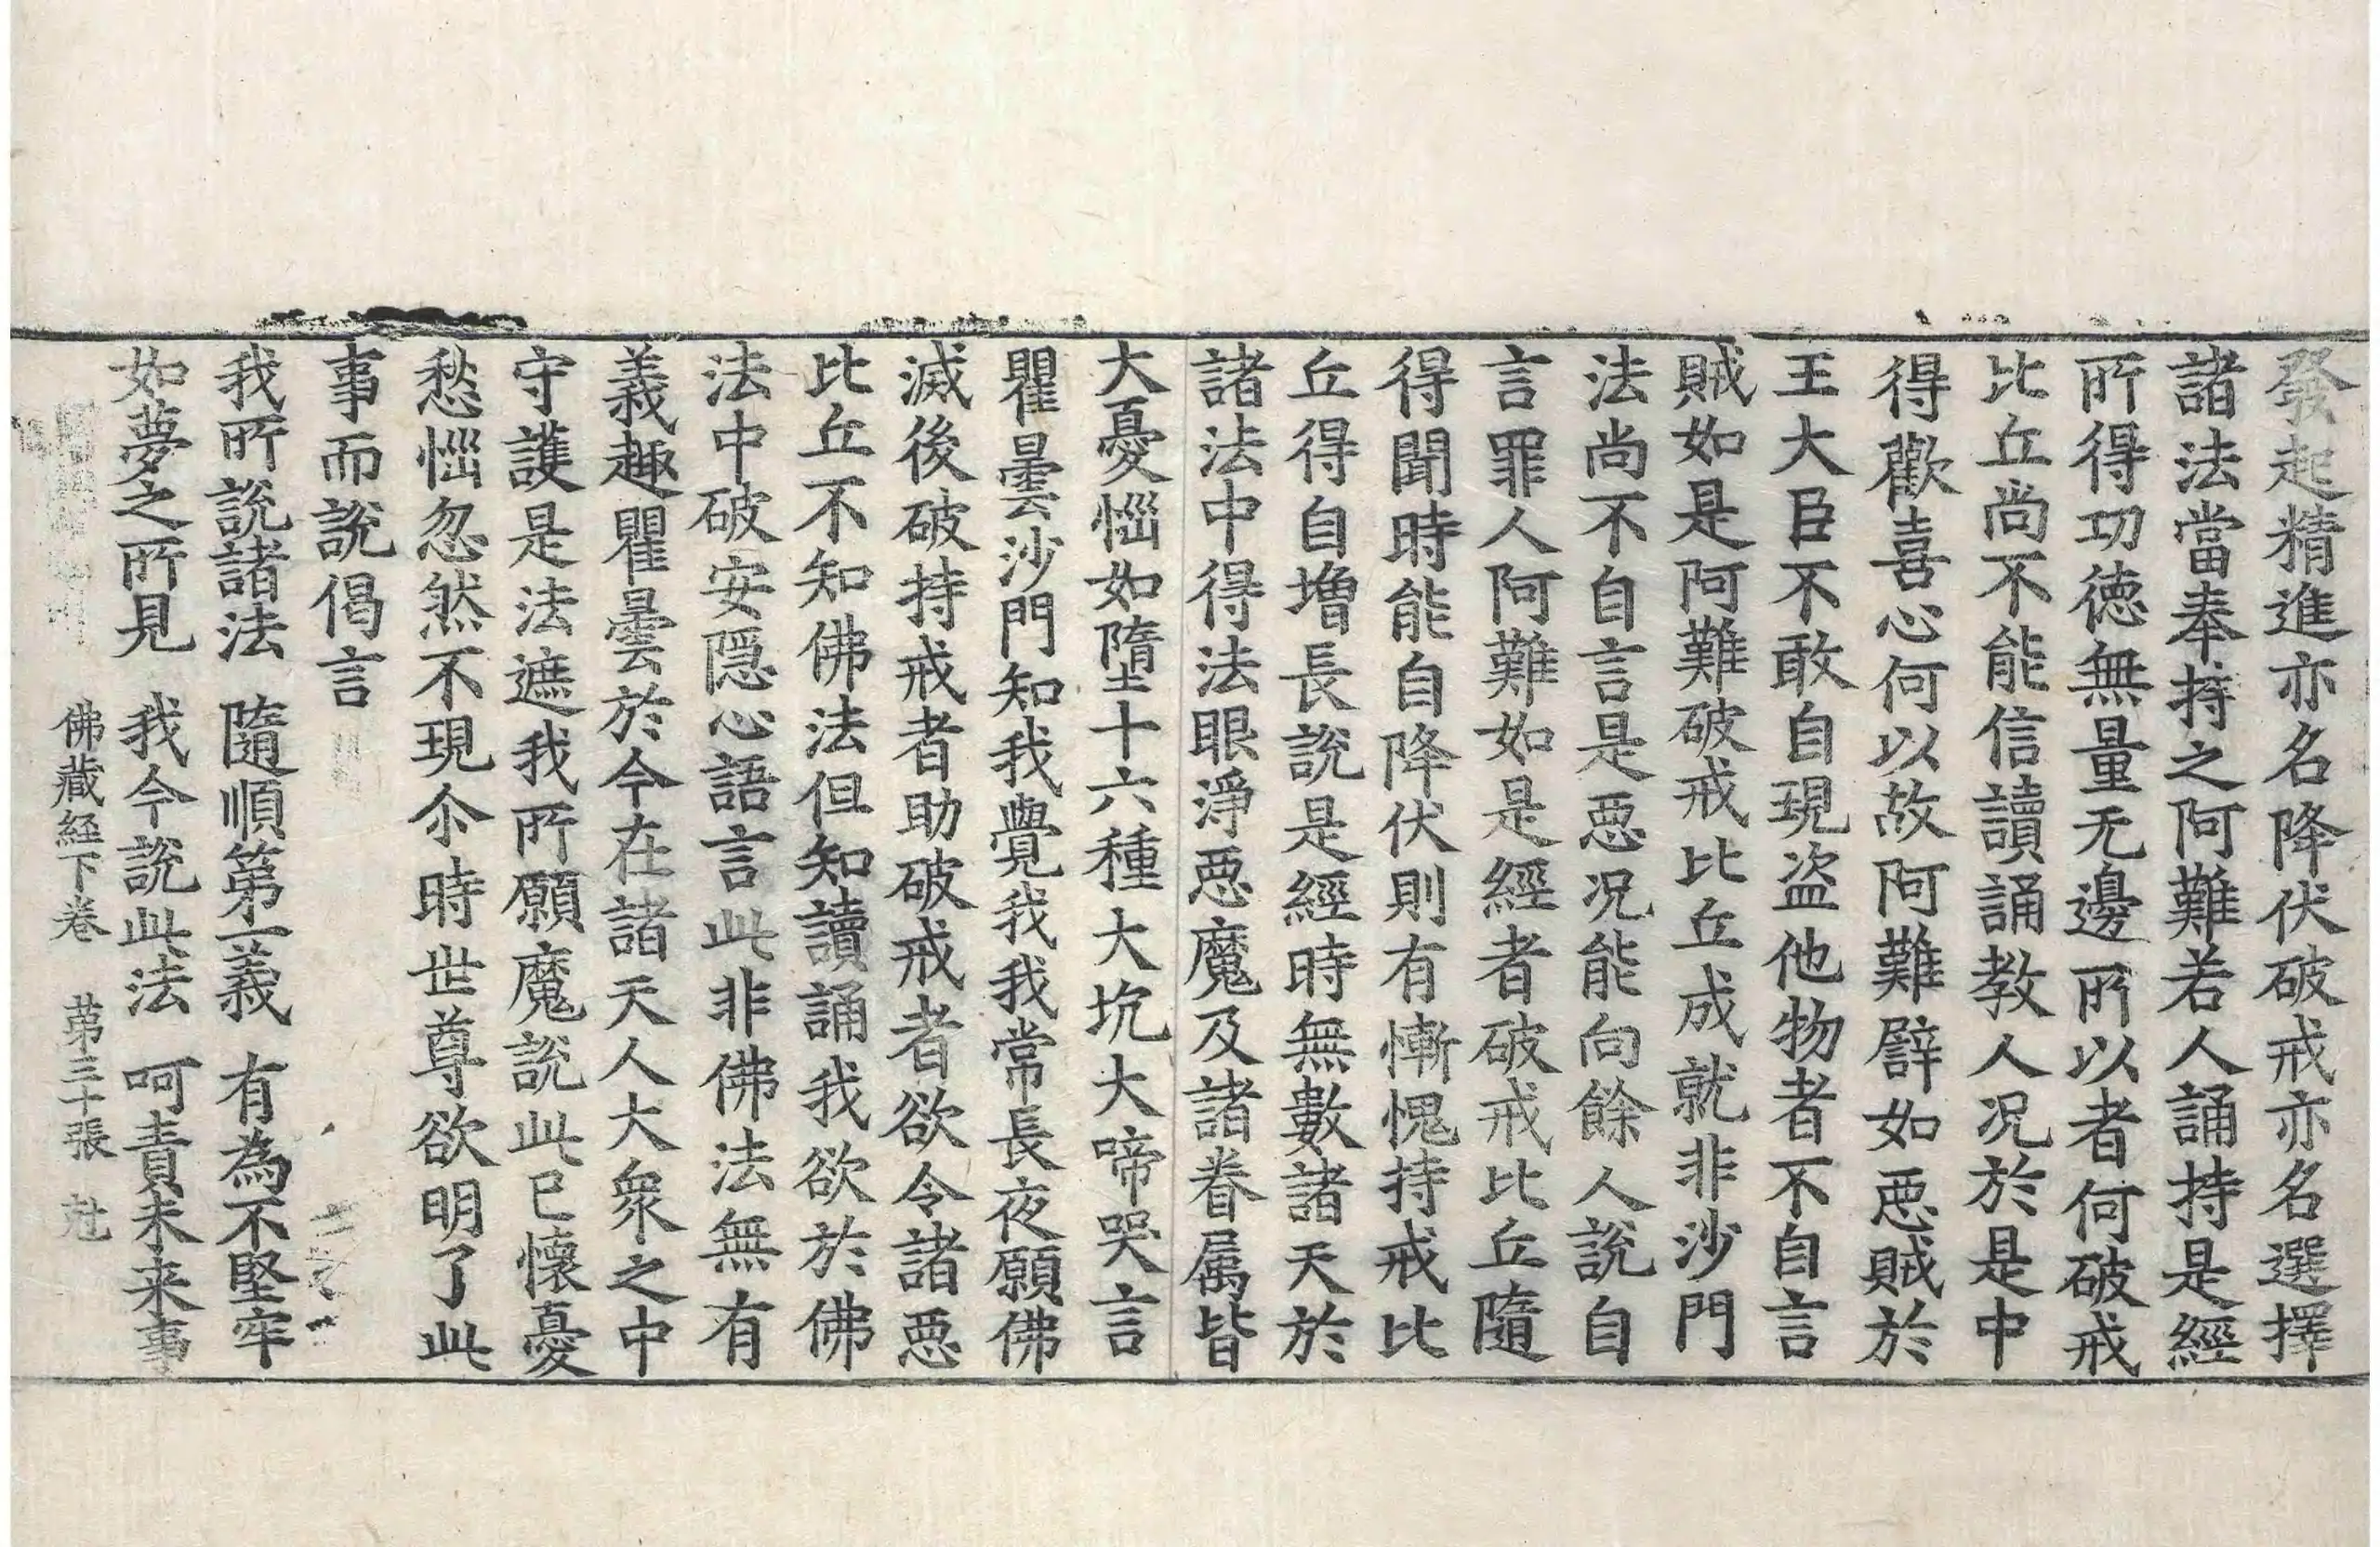 發起精進亦名降伏破戒亦名選擇
諸法當奉持之阿難若人誦持是經
所得功徳無量无邊所以者何破戒
比丘尚不能信讀誦教人况於是中
得歡喜心何以故阿難譬如惡賊於
王大臣不敢自現盗他物者不自言
賊如是阿難破戒比丘成就非沙門
法尚不自言是惡况能向餘人說自
言罪人阿難如是經者破戒比丘隨
得聞時能自降伏則有慚愧持戒比
丘得自増長說是經時無數諸天於
諸法中得法眼淨惡魔及諸眷属皆
大憂惱如墮十六種大坑大啼哭言
瞿曇沙門知我覺我我常長夜願佛
滅後破持戒者助破戒者欲令諸惡
比丘不知佛法但知讀誦我欲於佛
法中破安隠心語言此非佛法無有
義趣瞿曇於今在諸天人大衆之中
守護是法遮我所願魔說此已懷憂
愁惱忽然不現尒時世尊欲明了此
事而說偈言
我所說諸法　隨順第一義　有為不堅牢
如夢之所見　我今說此法　呵責未来事
佛藏経下卷　苐三十張